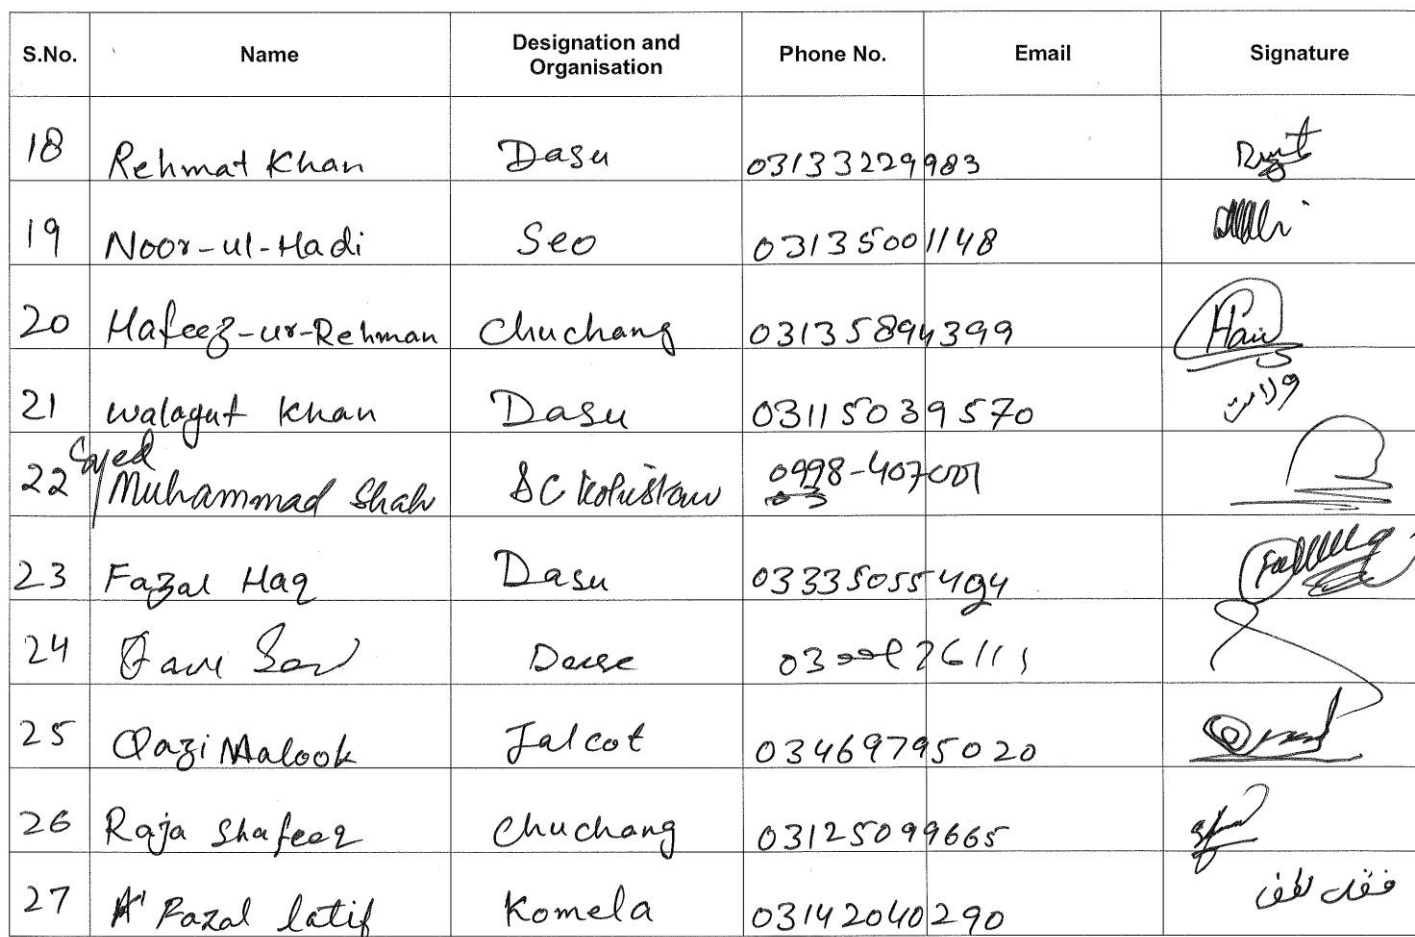 S.No. Name Designation and Organisation Phone No. Email Signature
18 Rehmat Khan Dasu 03133229983
19 Noor-ul-Hadi Seo 03135001148
20 Hafeez-ur-Rehman Chuchang 03135894399
21 Walagut Khan Dasu 03115039570 ولايت
22 Sayed Muhammad Shah DC Kohistan 0998-407001
23 Fazal Haq Dasu 03335055494
24
25 Qazi Malook Jalcot 03469795020
26 Raja Shafeeq Chuchang 03125099665
27 Fazal latif Komela 03142040290